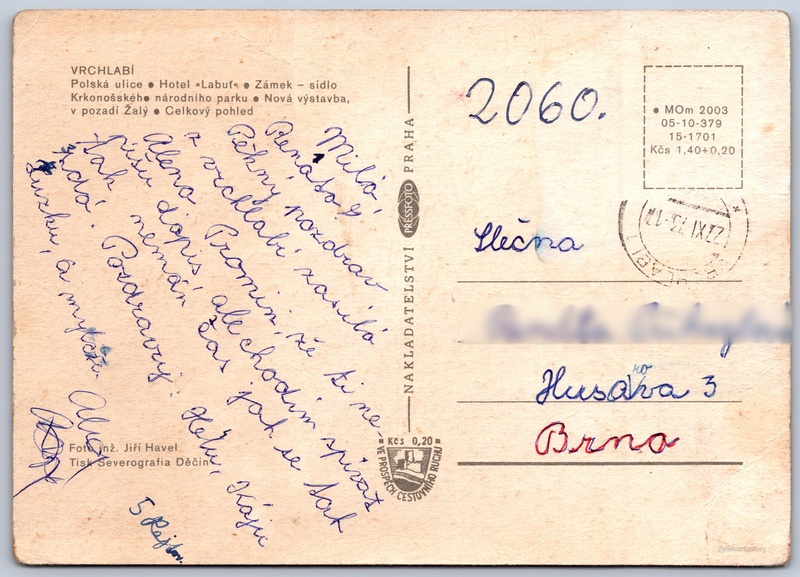 VRCHLABÍ
Polská ulice ● Hotel »Labuť« ● Zámek – sídlo
Krkonošského národního parku ● Nová výstavba,
v pozadí Žalý ● Celkový pohled
Milá
Renáto!
Pěkný pozdrav
z vrchlabí zasílá
Alena. Promiň, že ti ne-
píšu dopis, ale chodím spívat
tak nemám čas jak se tak
zdá. Pozdravuj Helu, Káju
Zuzku, a
Foto inž. Jiří Havel
Tisk Severografia Děčín
NAKLADATELSTVÍ PRESSFOTO PRAHA
Kčs 0,20
VE PROSPĚCH CESTOVNÍHO RUCHU
2060.
● MOm 2003
05-10-379
15-1701
Kčs 1,40+0,20
Slečna
Husova 3
ro
Brno